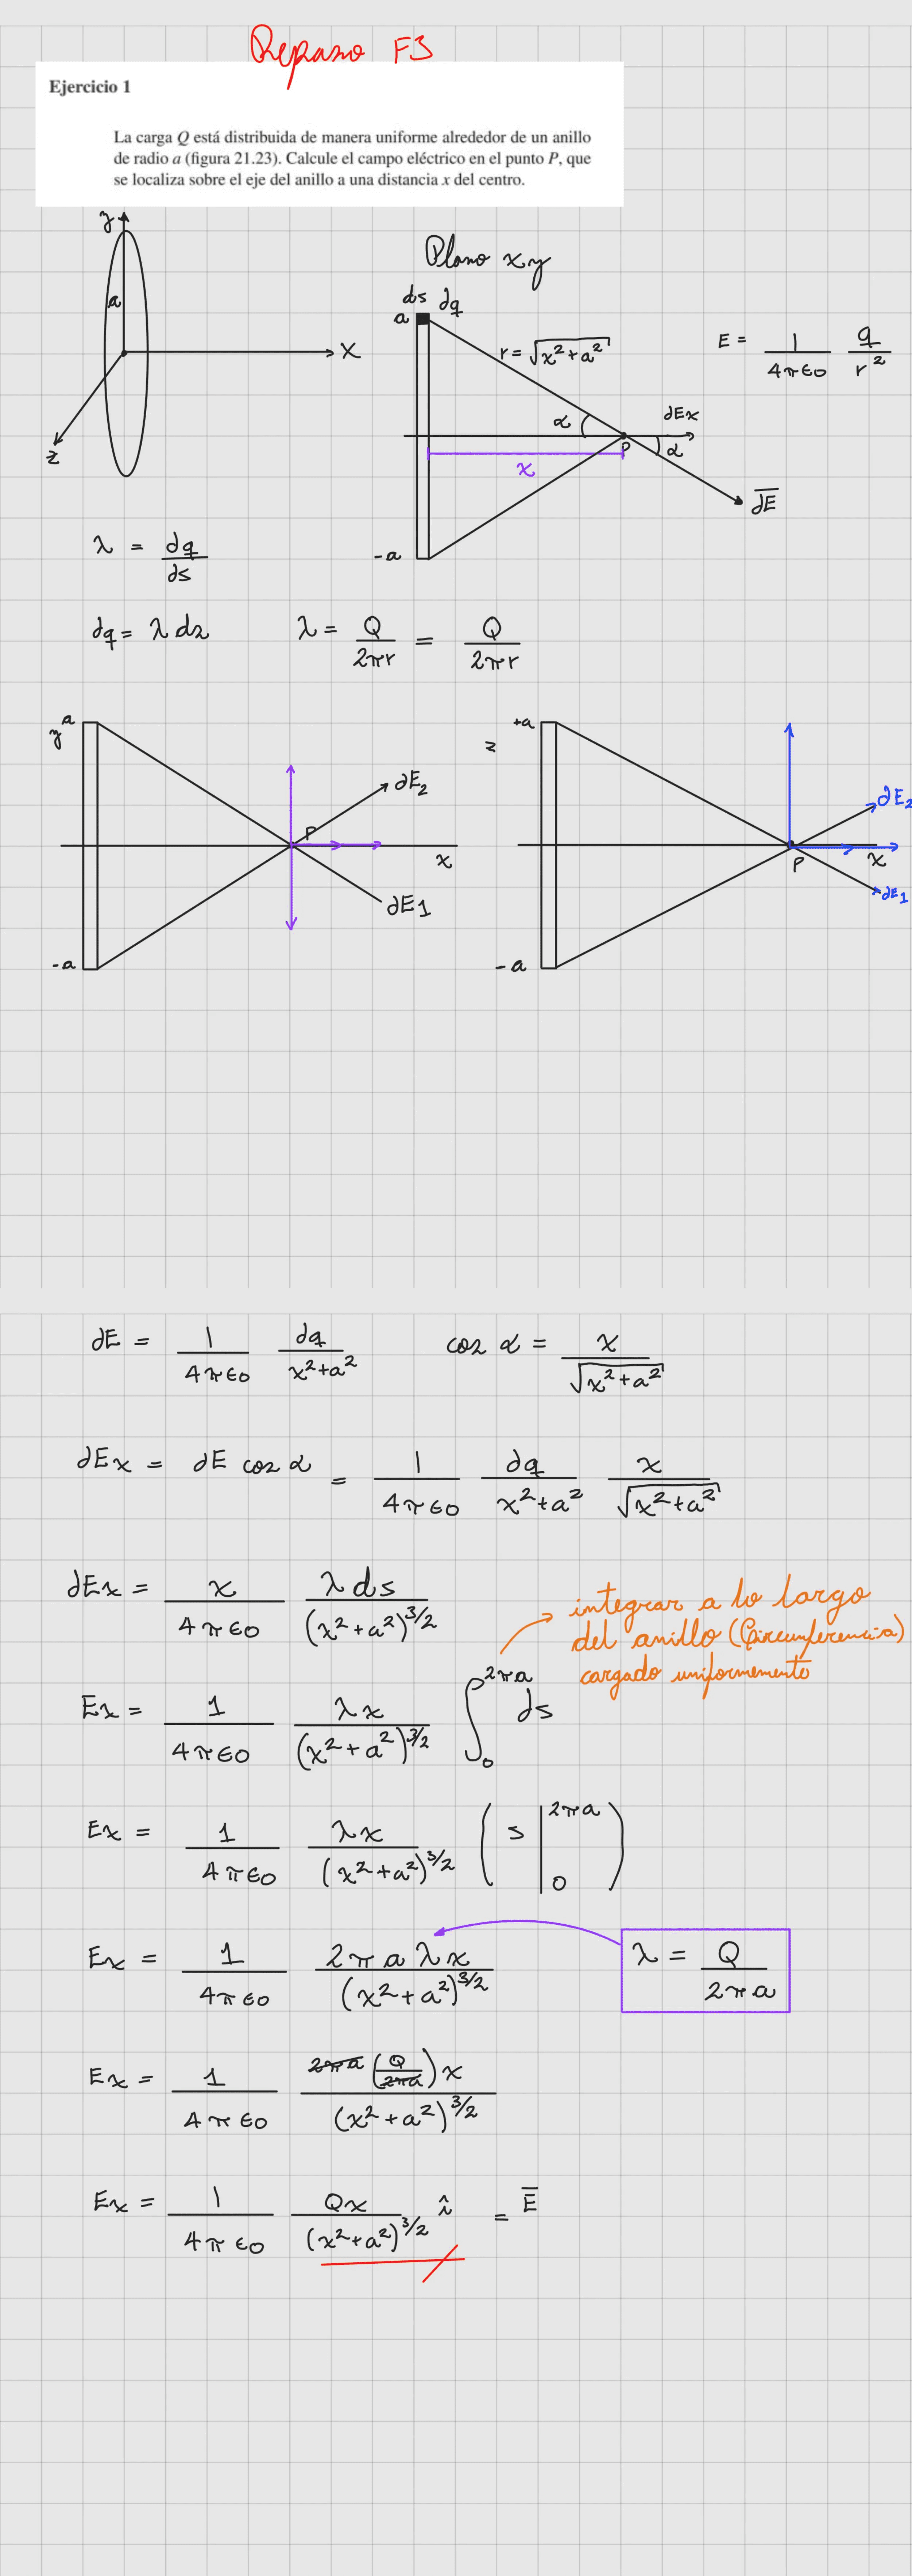 Repaso F3
Ejercicio 1
La carga Q está distribuida de manera uniforme alrededor de un anillo
de radio a (figura 21.23). Calcule el campo eléctrico en el punto P, que
se localiza sobre el eje del anillo a una distancia x del centro.
y
a
x
z
Plano xy
ds dq
a
r = √(x² + a²)
E = 1/(4πϵ0) q/r²
α
dEx
P
α
x
dE
-a
λ = dq/ds
dq = λ ds
λ = Q/(2πr) = Q/(2πr)
a
y
dE2
P
x
dE1
-a
+a
z
dE2
P
x
dE1
-a
dE = 1/(4πϵ0) dq/(x²+a²)
cos α = x/√(x²+a²)
dEx = dE cos α = 1/(4πϵ0) dq/(x²+a²) x/√(x²+a²)
dEx = x/(4πϵ0) λds/(x²+a²)^3/2
integrar a lo largo
del anillo (Circunferencia)
cargado uniformemente
Ex = 1/(4πϵ0) λx/(x²+a²)^3/2 ∫₀^2πa ds
Ex = 1/(4πϵ0) λx/(x²+a²)^3/2 (s |₀^2πa)
Ex = 1/(4πϵ0) 2πaλx/(x²+a²)^3/2
λ = Q/(2πa)
Ex = 1/(4πϵ0) 2πa(Q/2πa)x/(x²+a²)^3/2
Ex = 1/(4πϵ0) Qx/(x²+a²)^3/2 î = E